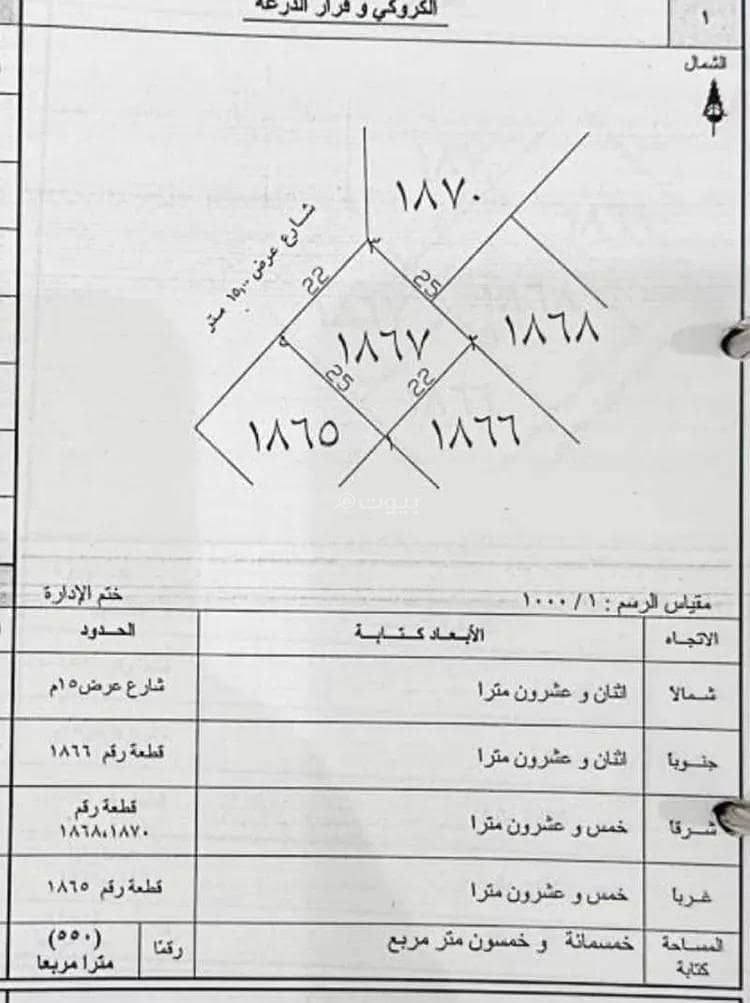 الكروكي و قرار الذرعة
١
الشمال
١٨٧٠
شارع عرض ١٥,٠٠ متر
22
25
٣
١٨٦٨
١٨٦٧
٢
٤
25
22
١٨٦٥
١٨٦٦
١
بيوت
مقياس الرسم : ١ / ١٠٠٠
ختم الإدارة
الاتجاه الأبعاد كتابة الحدود
شمالا اثنان و عشرون مترا شارع عرض١٥م
جنوبا اثنان و عشرون مترا قطعة رقم ١٨٦٦
شرقا خمس و عشرون مترا قطعة رقم
١٨٦٨،١٨٧٠
غربا خمس و عشرون مترا قطعة رقم ١٨٦٥
المساحة خمسمائة و خمسون متر مربع رقمًا (٥٥٠)
كتابة مترا مربعا